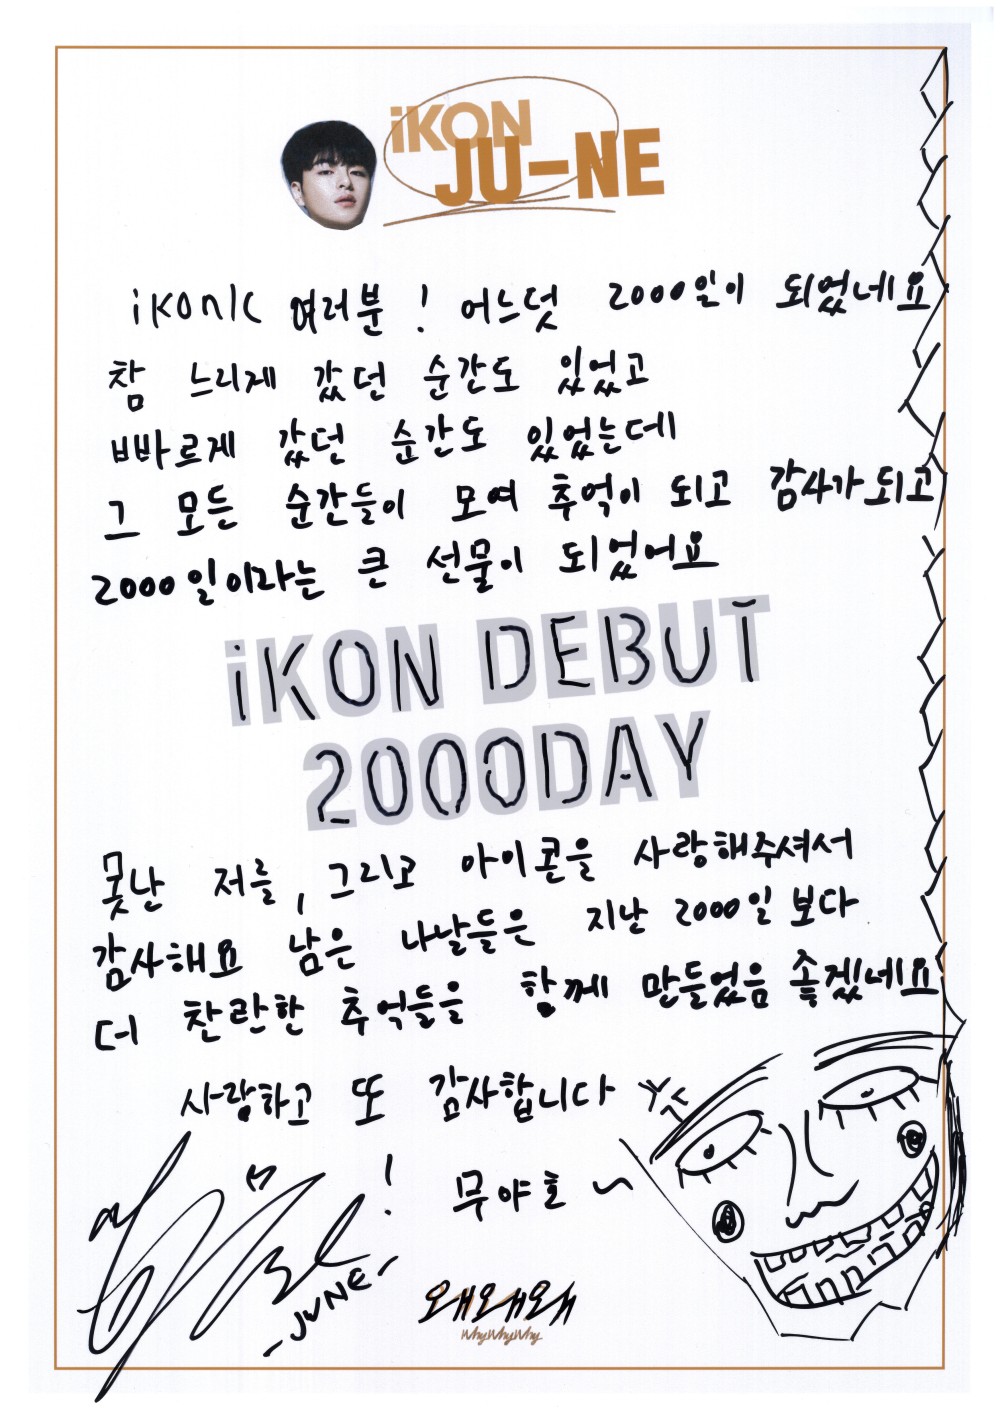 iKON
JU-NE
iKONIC 여러분! 어느덧 2000일이 되었네요
참 느리게 갔던 순간도 있었고
빠르게 갔던 순간도 있었는데
그 모든 순간들이 모여 추억이 되고 감사가 되고
2000일이라는 큰 선물이 되었어요
iKON DEBUT
2000DAY
못난 저를, 그리고 아이콘을 사랑해주셔서
감사해요 남은 나날들은 지난 2000일 보다
더 찬란한 추억들을 함께 만들었음 좋겠네요
사랑하고 또 감사합니다
! 무야호~
-JUNE-
왜왜왜
Why Why Why